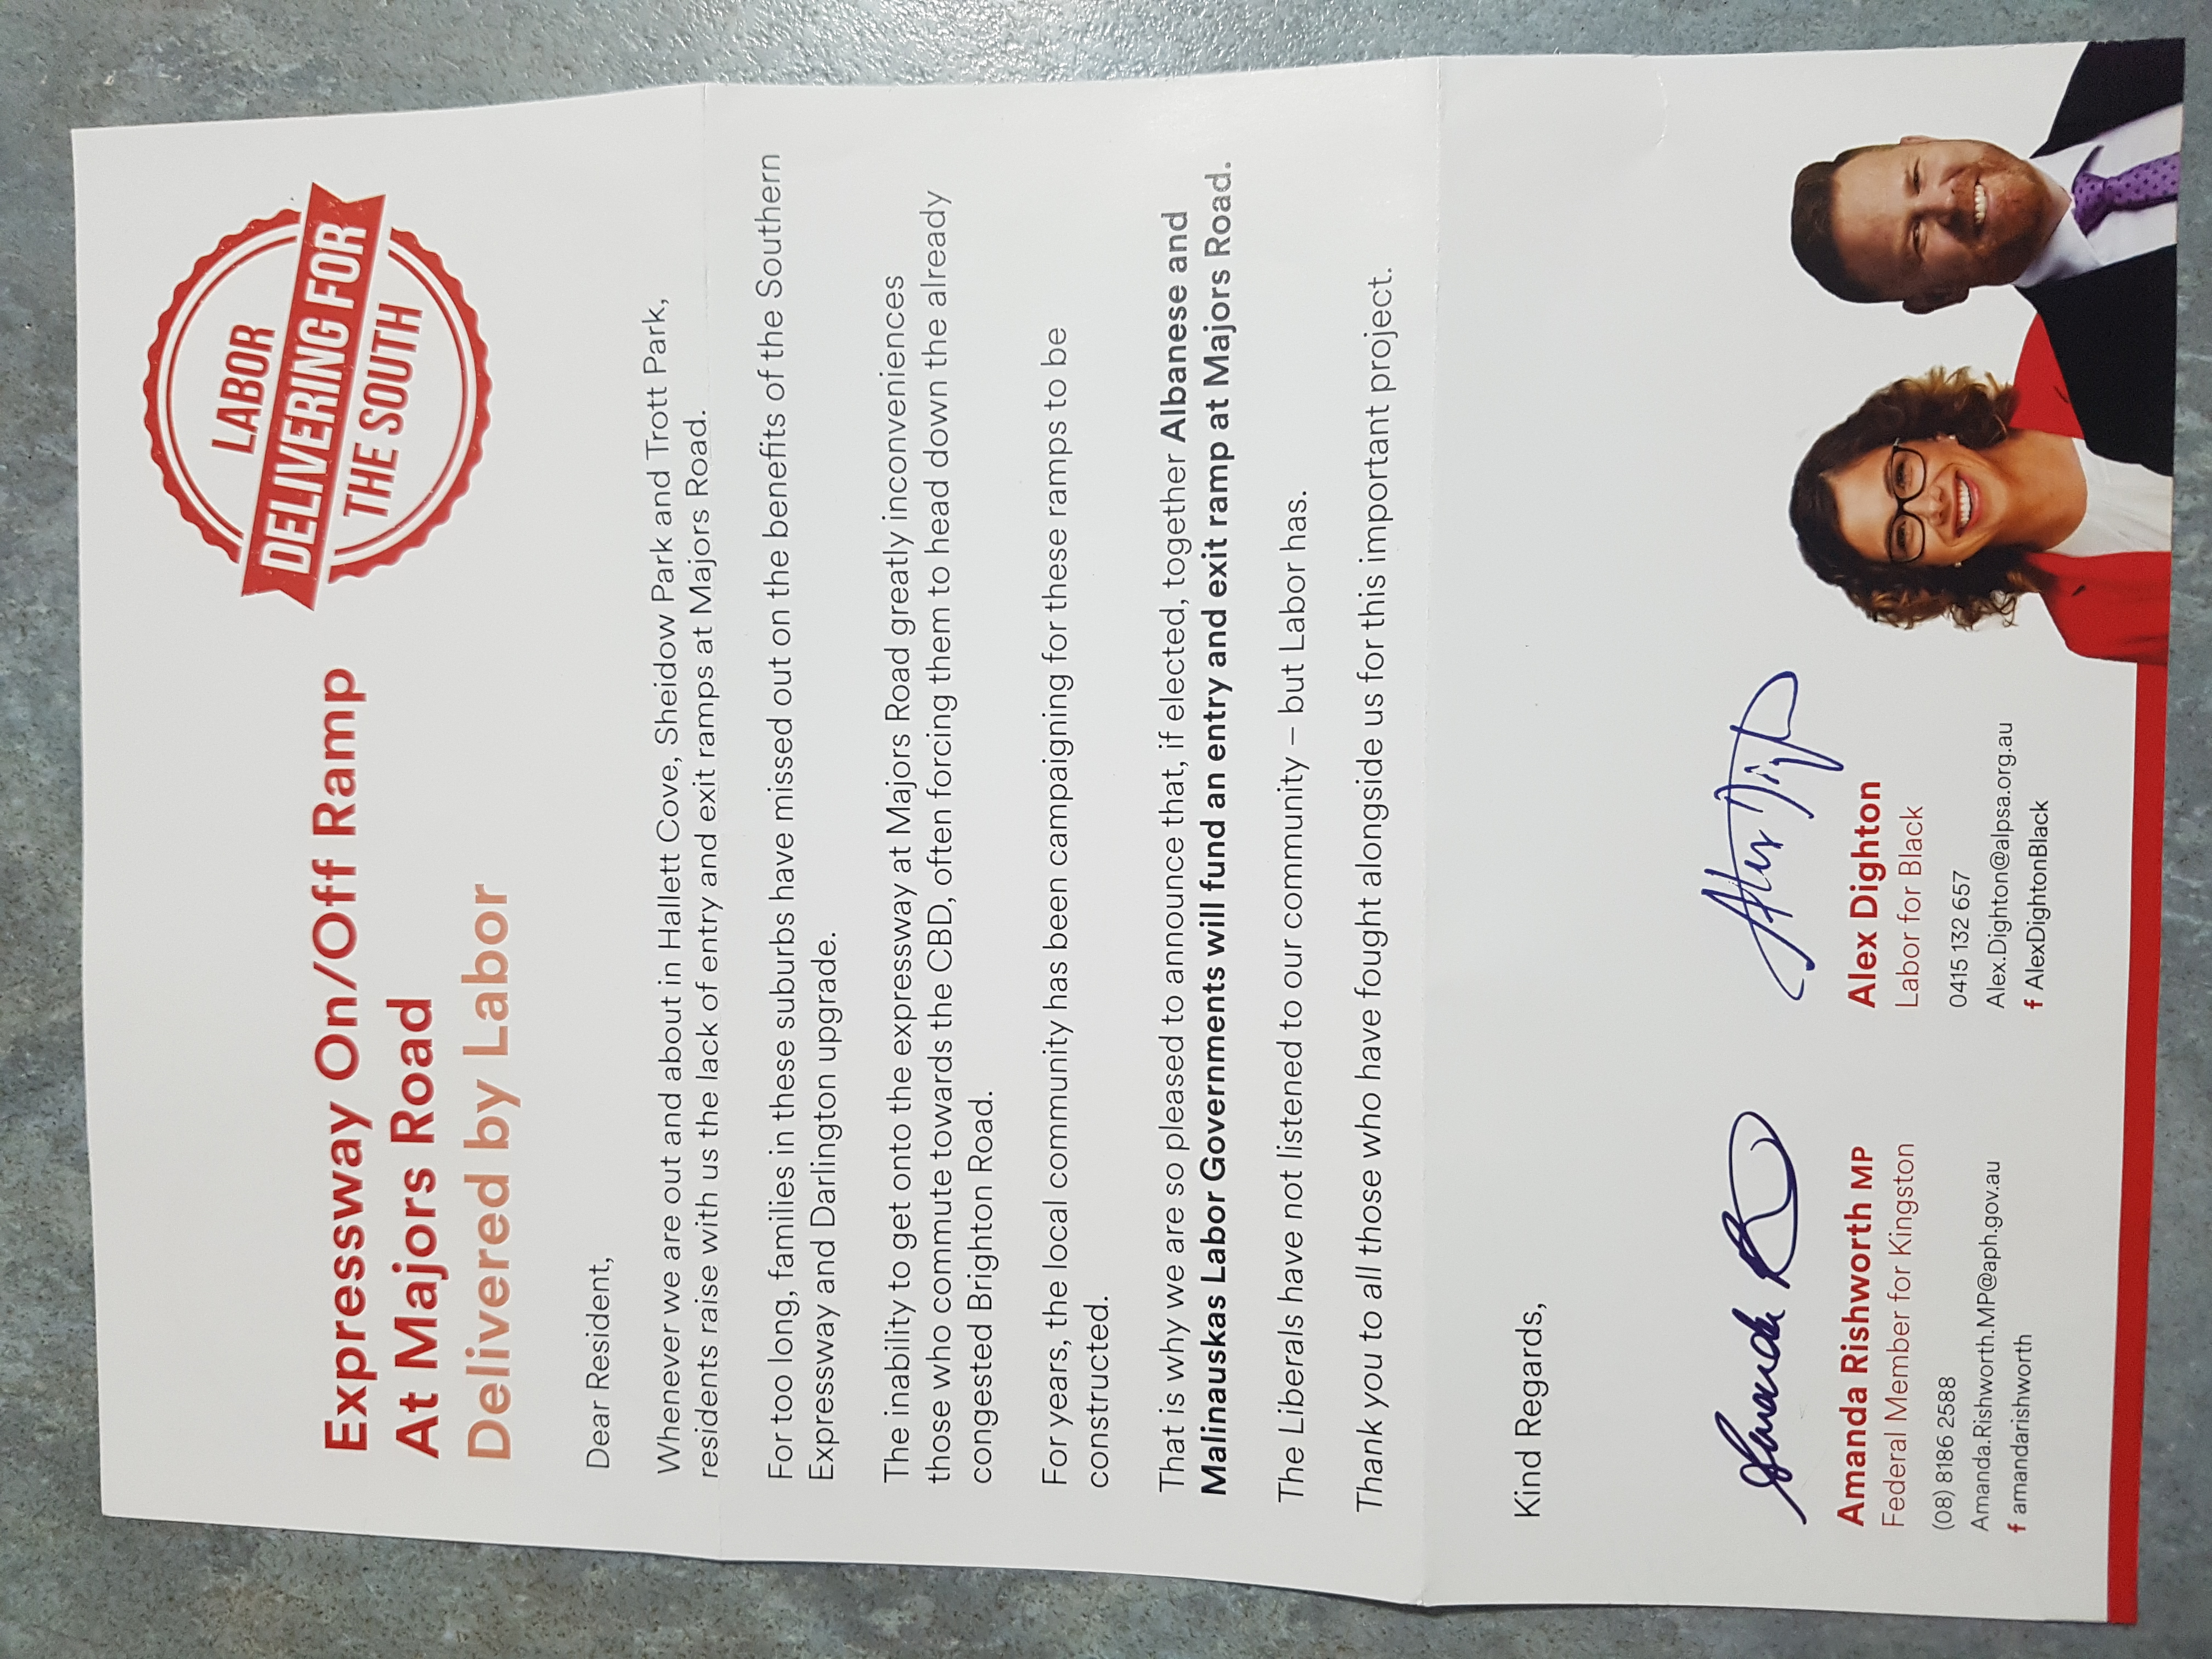 LABOR
DELIVERING FOR
THE SOUTH
Expressway On/Off Ramp
At Majors Road
Delivered by Labor
Dear Resident,
Whenever we are out and about in Hallett Cove, Sheidow Park and Trott Park,
residents raise with us the lack of entry and exit ramps at Majors Road.
For too long, families in these suburbs have missed out on the benefits of the Southern
Expressway and Darlington upgrade.
The inability to get onto the expressway at Majors Road greatly inconveniences
those who commute towards the CBD, often forcing them to head down the already
congested Brighton Road.
For years, the local community has been campaigning for these ramps to be
constructed.
That is why we are so pleased to announce that, if elected, together Albanese and
Malinauskas Labor Governments will fund an entry and exit ramp at Majors Road.
The Liberals have not listened to our community – but Labor has.
Thank you to all those who have fought alongside us for this important project.
Kind Regards,
Amanda R
Amanda Rishworth MP
Federal Member for Kingston
(08) 8186 2588
Amanda.Rishworth.MP@aph.gov.au
f amandarishworth
Alex Dighton
Labor for Black
0415 132 657
Alex.Dighton@alpsa.org.au
f AlexDightonBlack